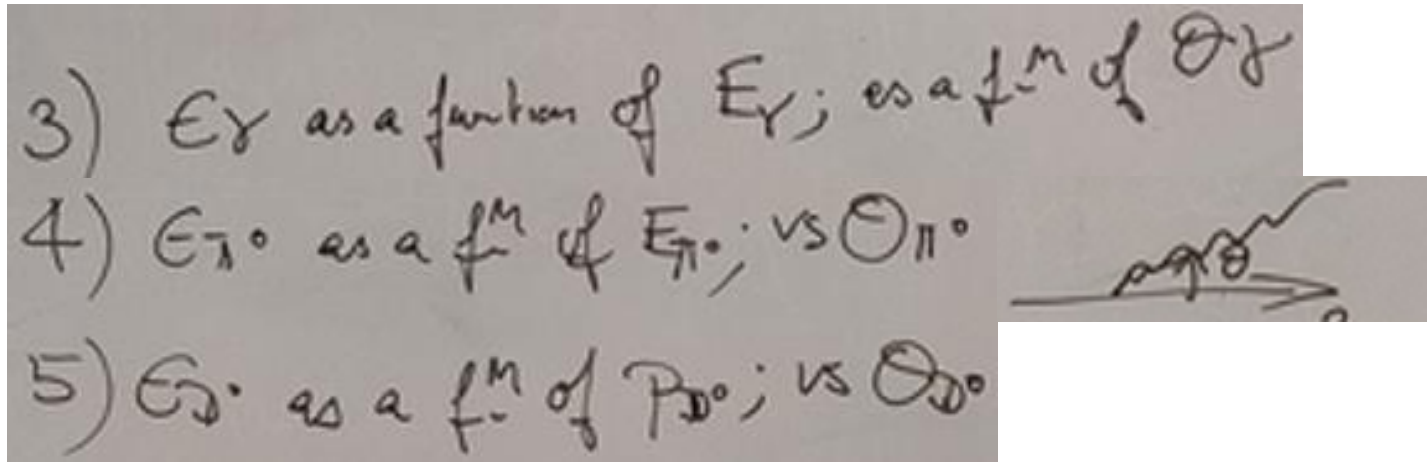 3) ϵγ as a function of Eγ; as a fⁿ of θγ
4) ϵπ° as a fⁿ of Eπ°; vs θπ°
5) ϵD° as a fⁿ of PD°; vs θD°